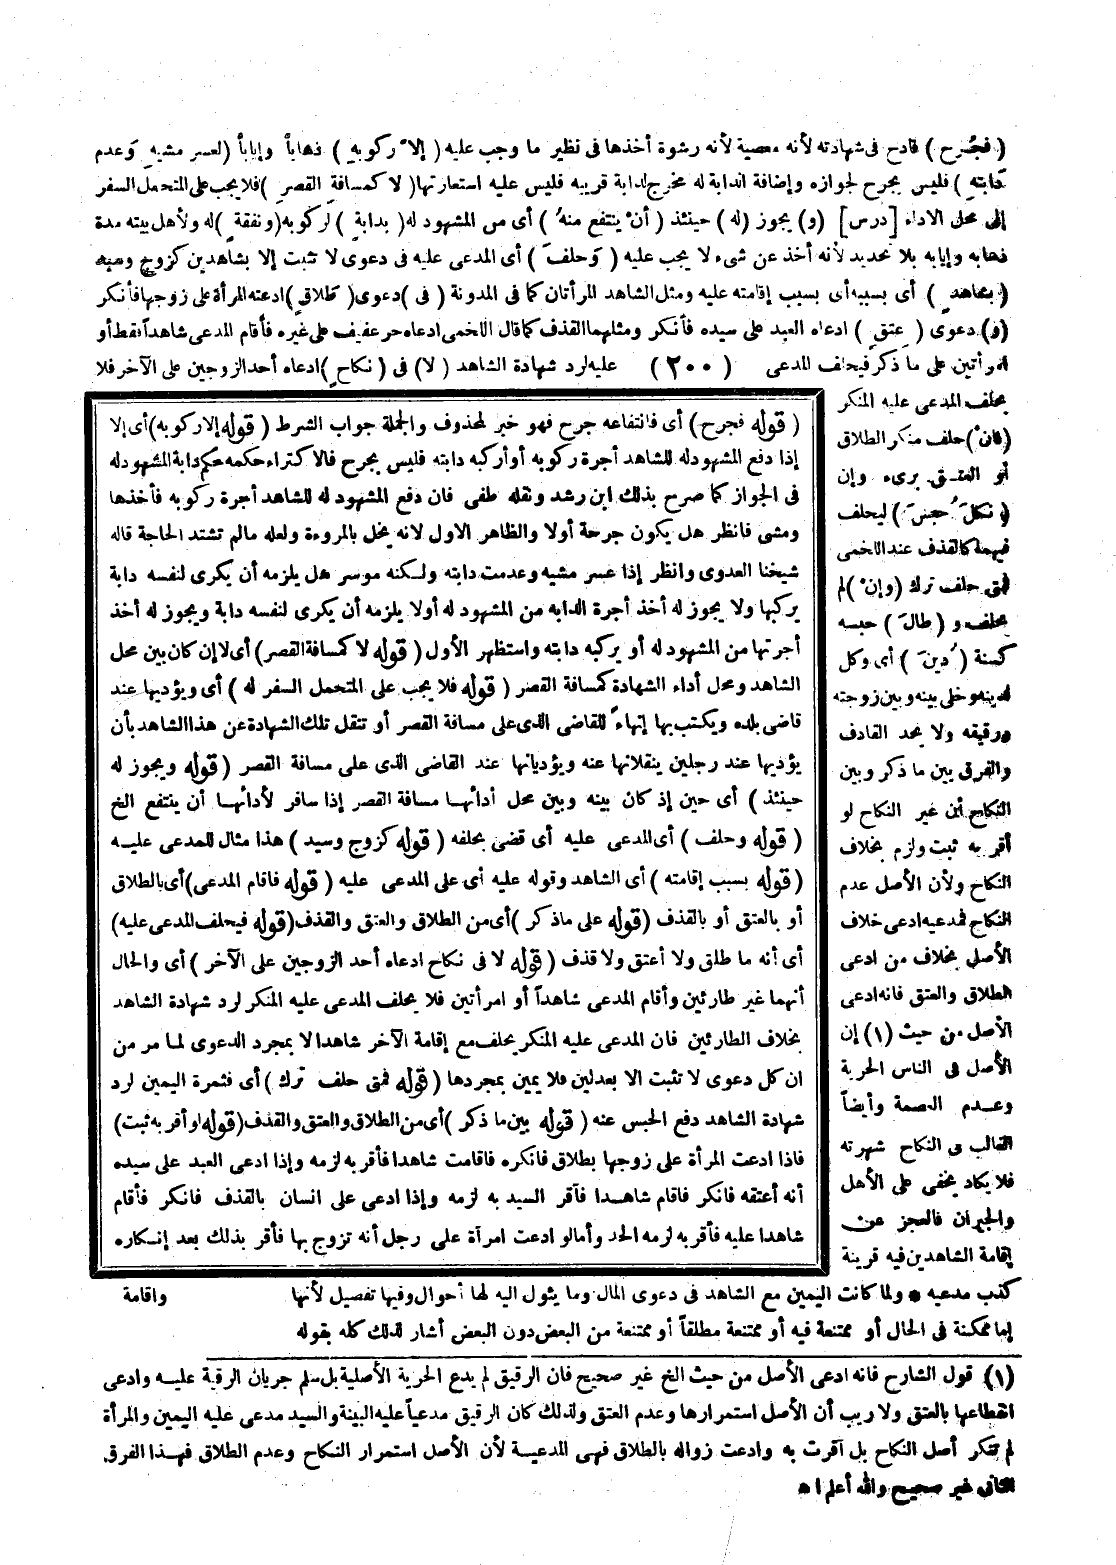 (فجُرح) قادح فى شهادته لأنه معصية لأنه رشوة أخذها فى نظير ما وجب عليه (إلاّ ركوبه) ذهاباً وإياباً (لعسر مشيه وَعدم
دَابته) فليس بجرح لجوازه وإضافة الدابة له مخرج لدابة قريبه فليس عليه استعارتها (لا كمسافة القصر) فلا يجب على المتحمل السفر
إلى محل الاداء [درس] (و) يجوز (له) حينئذ (أنْ ينتفع منهُ) أى من المشهود له (بدابة) لركوبه (ونفقة) له ولأهل بيته مدة
ذهابه وإيابه بلا تحديد لأنه أخذ عن شىء لا يجب عليه (وَحلفَ) أى المدعى عليه فى دعوى لا تثبت إلا بشاهدين كزوج وسيد
(بشاهد) أى بسببه أى بسبب إقامته عليه ومثل الشاهد المرأتان كما فى المدونة (فى) دعوى (طلاق) ادعته المرأة على زوجها فأنكر
(و) دعوى (عتق) ادعاه العبد على سيده فأنكر ومثلهما القذف كما قال اللخمى ادعاه حر عفيف على غيره فأقام المدعى شاهداً فقط أو
امرأتين على ما ذكر فيحلف المدعى (٢٠٠) عليه لرد شهادة الشاهد (لا) فى (نكاح) ادعاه أحد الزوجين على الآخر فلا
يحلف المدعى عليه المنكر
(فانْ) حلف منكر الطلاق
أو العتق برىء وإن
(نكلَ حُبسَ) ليحلف
فيهما كالقذف عند اللخمى
فمتى حلف ترك (وإنْ) لم
يحلف و (طالَ) حبسه
كسنة (دُينَ) أى وكل
لدينه وخلى بينه وبين زوجته
ورقيقه ولا يحد القاذف
والفرق بين ما ذكر وبين
النكاح أن غير النكاح لو
أقر به ثبت ولزم بخلاف
النكاح ولأن الأصل عدم
النكاح فمدعيه ادعى خلاف
الأصل بخلاف من ادعى
الطلاق والعتق فانه ادعى
الأصل من حيث (١) إن
الأصل فى الناس الحرية
وعدم العصمة وأيضاً
الغالب فى النكاح شهرته
فلا يكاد يخفى على الأهل
والجيران فالعجز عن
إقامة الشاهدين فيه قرينة
كذب مدعيه * ولما كانت اليمين مع الشاهد فى دعوى المال وما يئول اليه لها أحوال وفيها تفصيل لأنها
إما ممكنة فى الحال أو ممتنعة فيه أو ممتنعة مطلقاً أو ممتنعة من البعض دون البعض أشار لذلك كله بقوله
واقامة
(قوله فجرح) أى فانتفاعه جرح فهو خبر لمحذوف والجملة جواب الشرط (قوله إلا ركوبه) أى إلا
إذا دفع المشهود له للشاهد أجرة ركوبه أو أركبه دابته فليس بجرح فالاكتراء حكمه حكم دابة المشهود له
فى الجواز كما صرح بذلك ابن رشد ونقله طفى فان دفع المشهود له للشاهد أجرة ركوبه فأخذها
ومشى فانظر هل يكون جرحة أولا والظاهر الاول لانه يخل بالمروءة ولعله مالم تشتد الحاجة قاله
شيخنا العدوى وانظر إذا عسر مشيه وعدمت دابته ولكنه موسر هل يلزمه أن يكرى لنفسه دابة
يركبها ولا يجوز له أخذ أجرة الدابه من المشهود له أولا يلزمه أن يكرى لنفسه دابة ويجوز له أخذ
أجرتها من المشهود له أو يركبه دابته واستظهر الأول (قوله لا كمسافة القصر) أى لا إن كان بين محل
الشاهد ومحل أداء الشهادة كمسافة القصر (قوله فلا يجب على المتحمل السفر له) أى ويؤديها عند
قاضى بلده ويكتب بها إنهاءً للقاضى الذى على مسافة القصر أو تنقل تلك الشهادة عن هذا الشاهد بأن
يؤديها عند رجلين ينقلانها عنه ويؤديانها عند القاضى الذى على مسافة القصر (قوله ويجوز له
حينئذ) أى حين إذ كان بينه وبين محل أدائها مسافة القصر إذا سافر لأدائها أن ينتفع الخ
(قوله وحلف) أى المدعى عليه أى قضى بحلفه (قوله كزوج وسيد) هذا مثال للمدعى عليه
(قوله بسبب إقامته) أى الشاهد وقوله عليه أى على المدعى عليه (قوله فاقام المدعى) أى بالطلاق
أو بالعتق أو بالقذف (قوله على ما ذكر) أى من الطلاق والعتق والقذف (قوله فيحلف المدعى عليه)
أى أنه ما طلق ولا أعتق ولا قذف (قوله لا فى نكاح ادعاه أحد الزوجين على الآخر) أى والحال
أنهما غير طارئين وأقام المدعى شاهداً أو امرأتين فلا يحلف المدعى عليه المنكر لرد شهادة الشاهد
بخلاف الطارئين فان المدعى عليه المنكر يحلف مع إقامة الآخر شاهدا لا بمجرد الدعوى لما مر من
ان كل دعوى لا تثبت الا بعدلين فلا يمين بمجردها (قوله فمتى حلف ترك) أى فثمرة اليمين لرد
شهادة الشاهد دفع الحبس عنه (قوله بين ما ذكر) أى من الطلاق والعتق والقذف (قوله لو أقر به ثبت)
فاذا ادعت المرأة على زوجها بطلاق فانكره فاقامت شاهدا فأقر به لزمه وإذا ادعى العبد على سيده
أنه أعتقه فانكر فاقام شاهدا فأقر السيد به لزمه وإذا ادعى على انسان بالقذف فانكر فأقام
شاهدا عليه فأقر به لزمه الحد وأما لو ادعت امرأة على رجل أنه تزوج بها فأقر بذلك بعد إنكاره
(١) قول الشارح فانه ادعى الأصل من حيث الخ غير صحيح فان الرقيق لم يدع الحرية الأصلية بل سلم جريان الرقبة عليه وادعى
انقطاعها بالعتق ولا ريب أن الأصل استمرارها وعدم العتق ولذلك كان الرقيق مدعياً عليه البينة والسيد مدعى عليه اليمين والمرأة
لم تنكر أصل النكاح بل أقرت به وادعت زواله بالطلاق فهى المدعية لأن الأصل استمرار النكاح وعدم الطلاق فهذا الفرق
الثانى غير صحيح والله أعلم اه